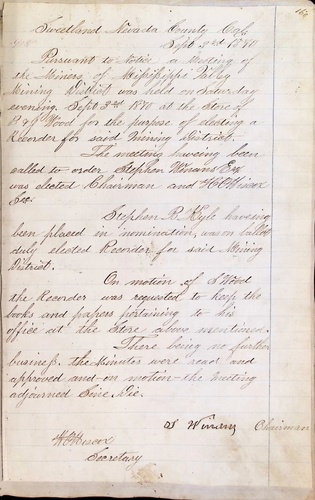 167
Sweetland Nevada County Cal
Sept 3rd 1870
Pursuant to Notice a Meeting of
the Miners of Mississippi Valley
Mining District was held on Saturday
evening Sept 3rd 1870 at the Store of
Wood for the purpose of electing a
Recorder for said Mining District.
The meeting haveing been
called to order Stephen Winans Esq
was elected Chairman and W C Hiscox
Sec.
Stephen R. Kyle haveing
been placed in nomination, was on ballot
duly elected Recorder for said Mining
District.
On motion of S Wood
the Recorder was requested to keep the
books and papers pertaining to his
office at the Store above mentioned.
There being no further
business the Minutes were read and
approved and on motion the meeting
adjourned Sine Die.
S Winans Chairman
W C Hiscox
Secretary